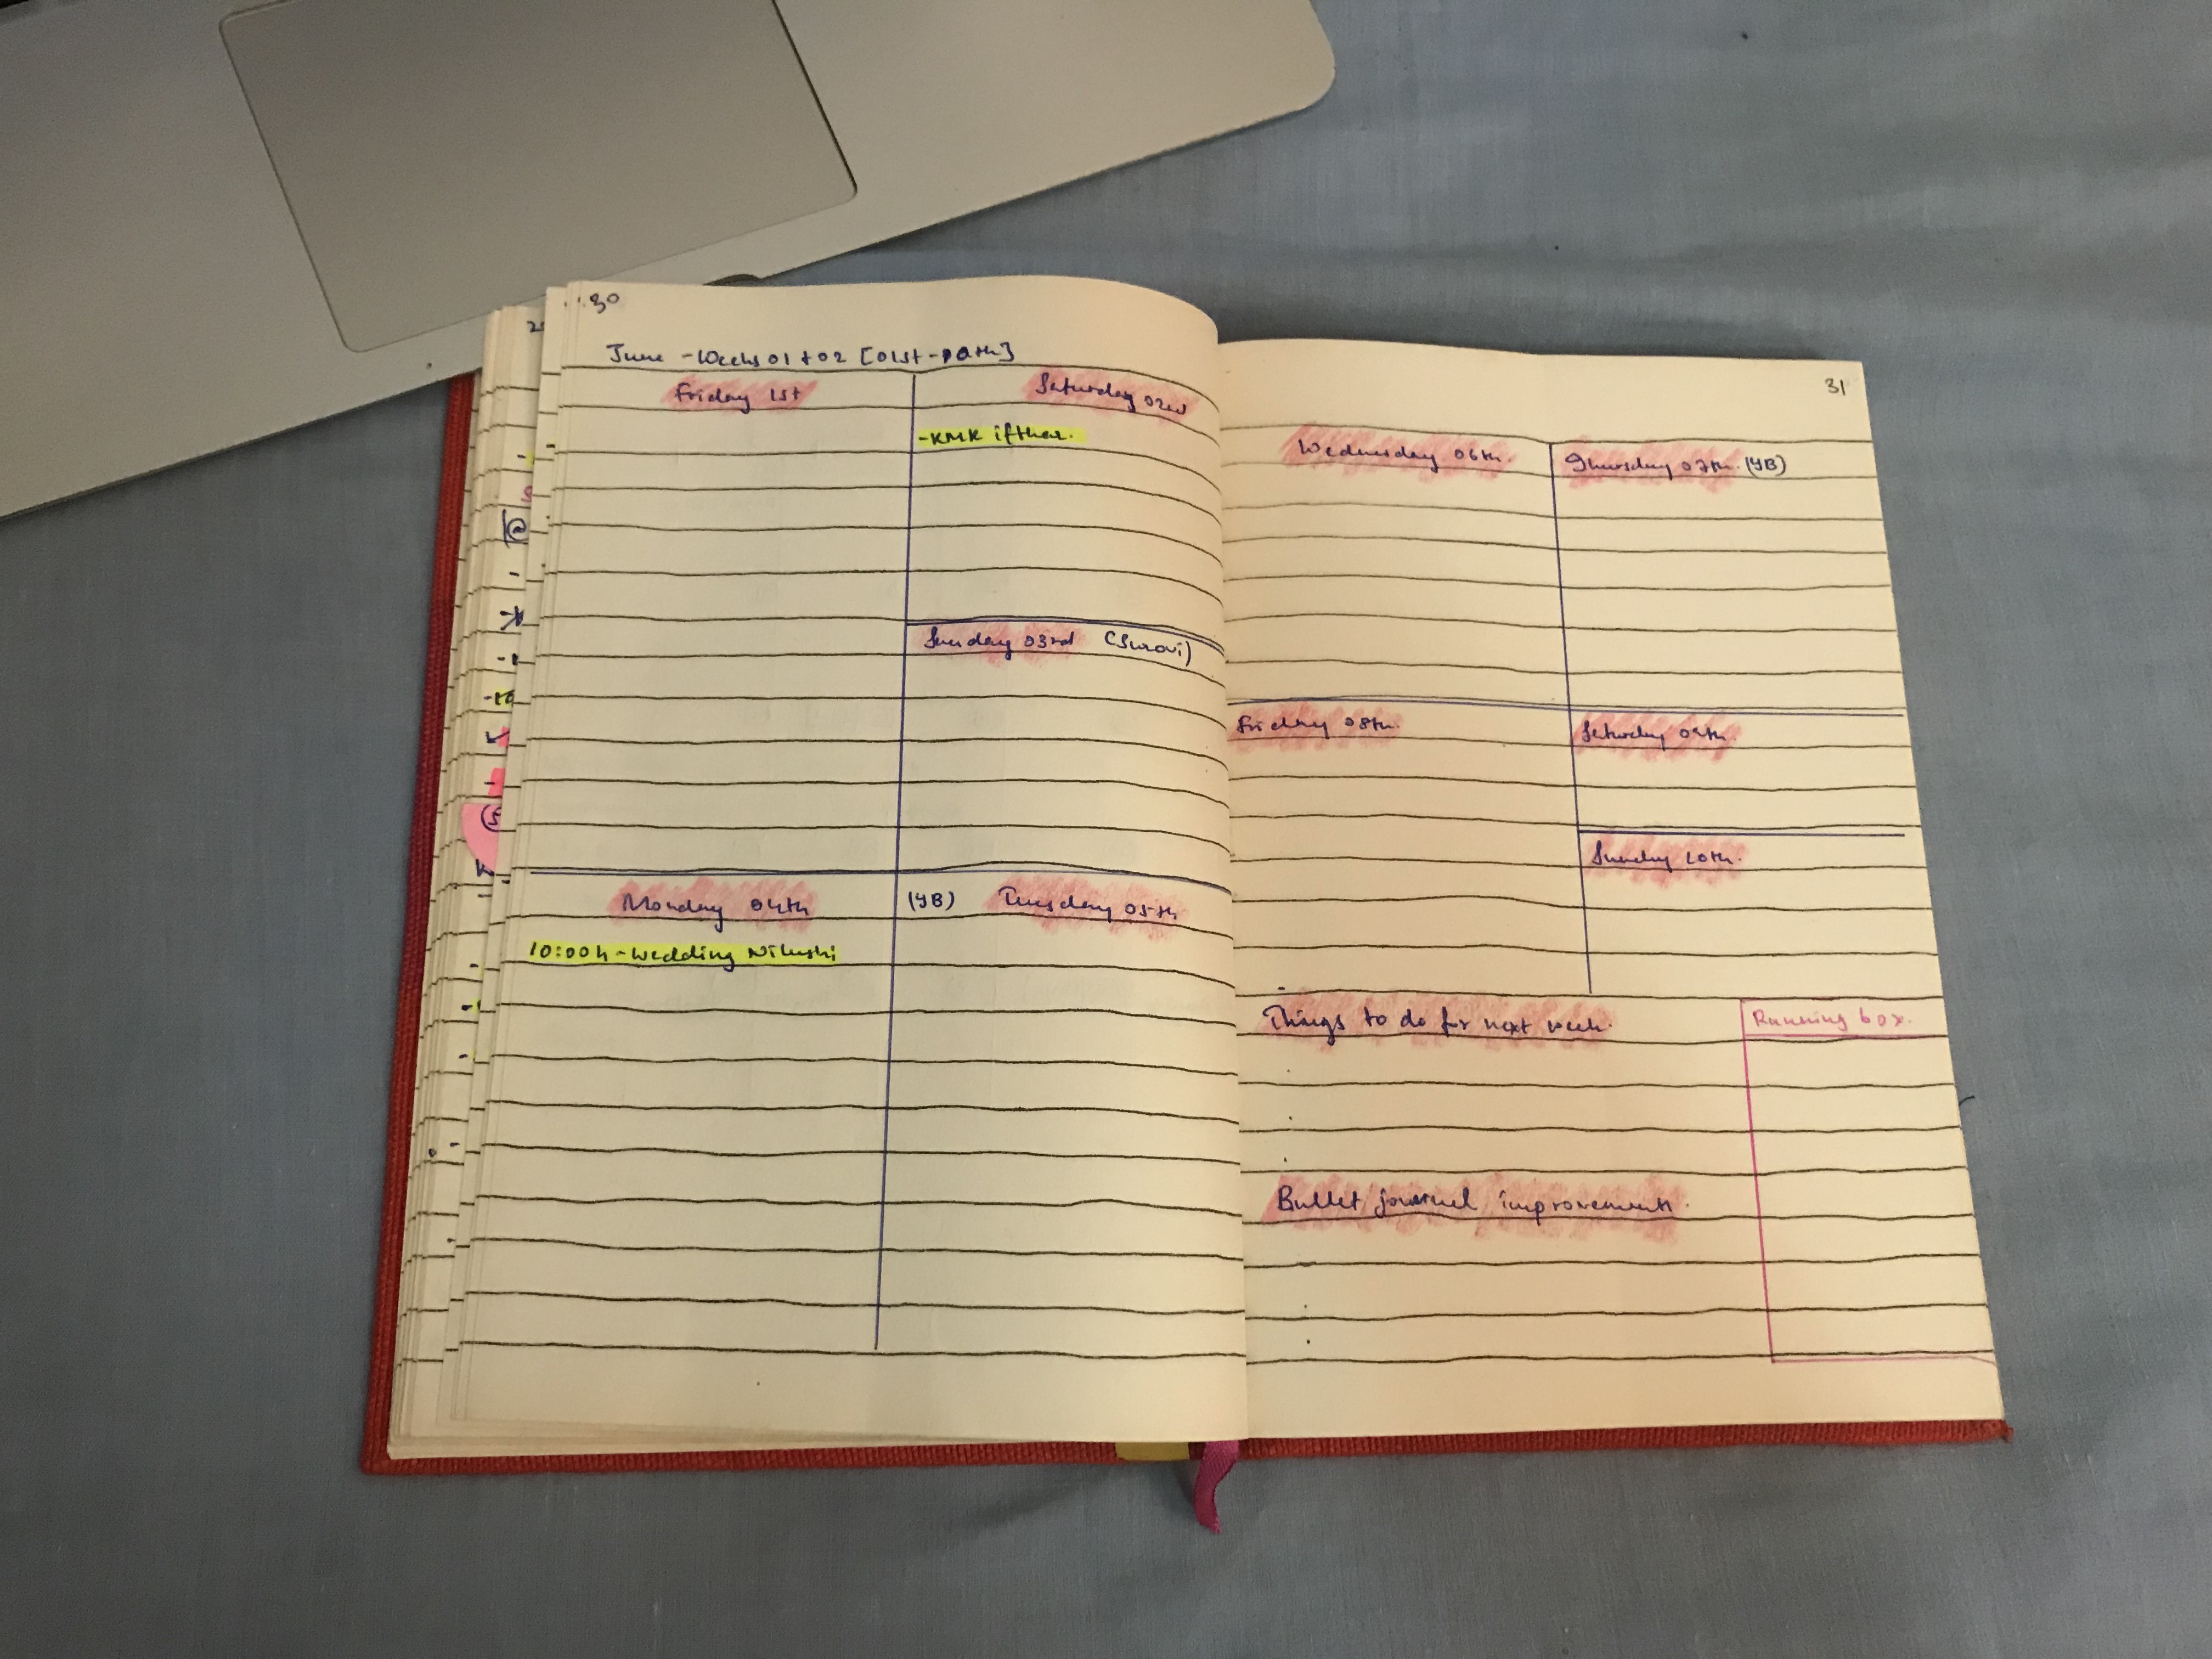 30
June - Weeks 01 + 02 [01st - 10th]
Friday 1st
Saturday 02nd
- KMK ifthar.
Sunday 03rd (Surovi)
Monday 04th
10:00h - Wedding Nilushi
(YB) Tuesday 05th
31
Wednesday 06th.
Thursday 07th. (YB)
Friday 08th.
Saturday 09th.
Sunday 10th.
Things to do for next week.
Running box.
Bullet journal improvements.